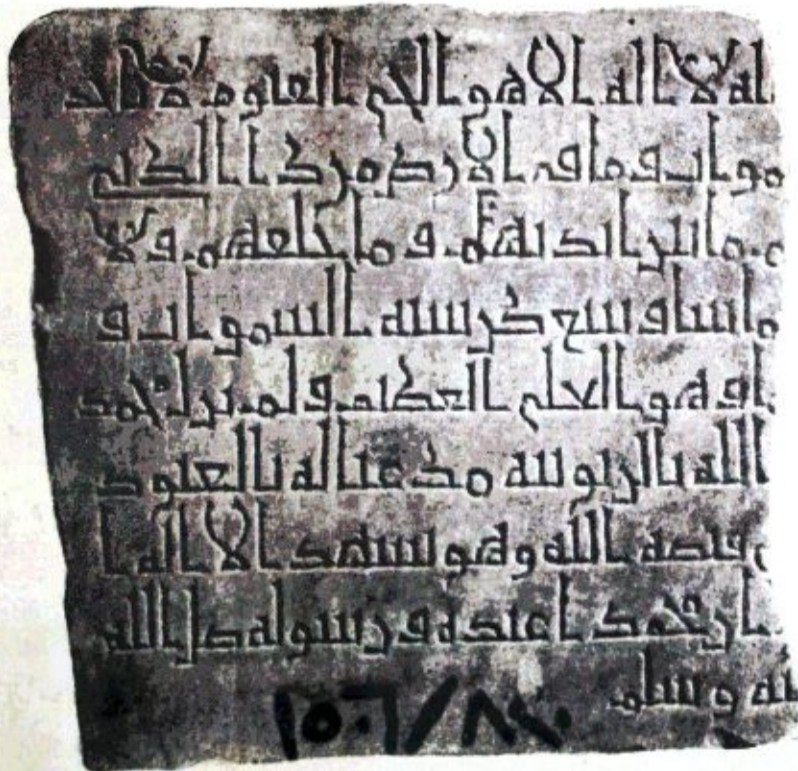 لله لا اله الا هو الحي القيوم لا تاخذ
موات وما في الارض من ذا الذي
م ما بين ايديهم وما خلفهم ولا
ما شا وسع كرسيه السموات و
ا وهو العلي العظيم ولم يزل
الله بالربوبيه مذعنا له بالعبود
ي قبضه الله وهو يشهد الا اله ا
ان محمدا عبده ورسوله صلى الله
يه وسلم
١٥٠٦/٨٢٠